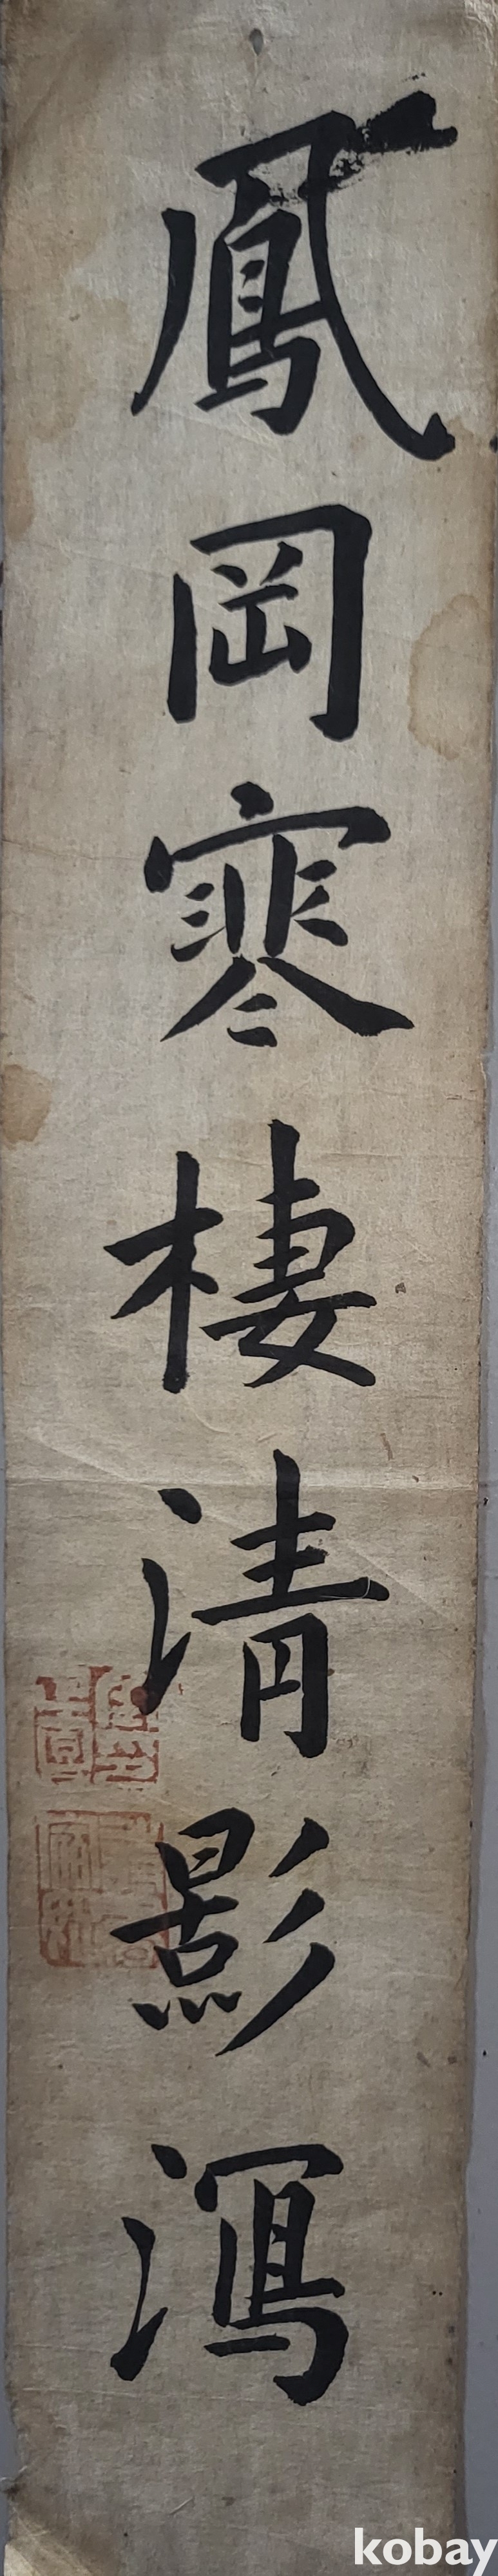 鳳岡寒棲清影瀉
kobay